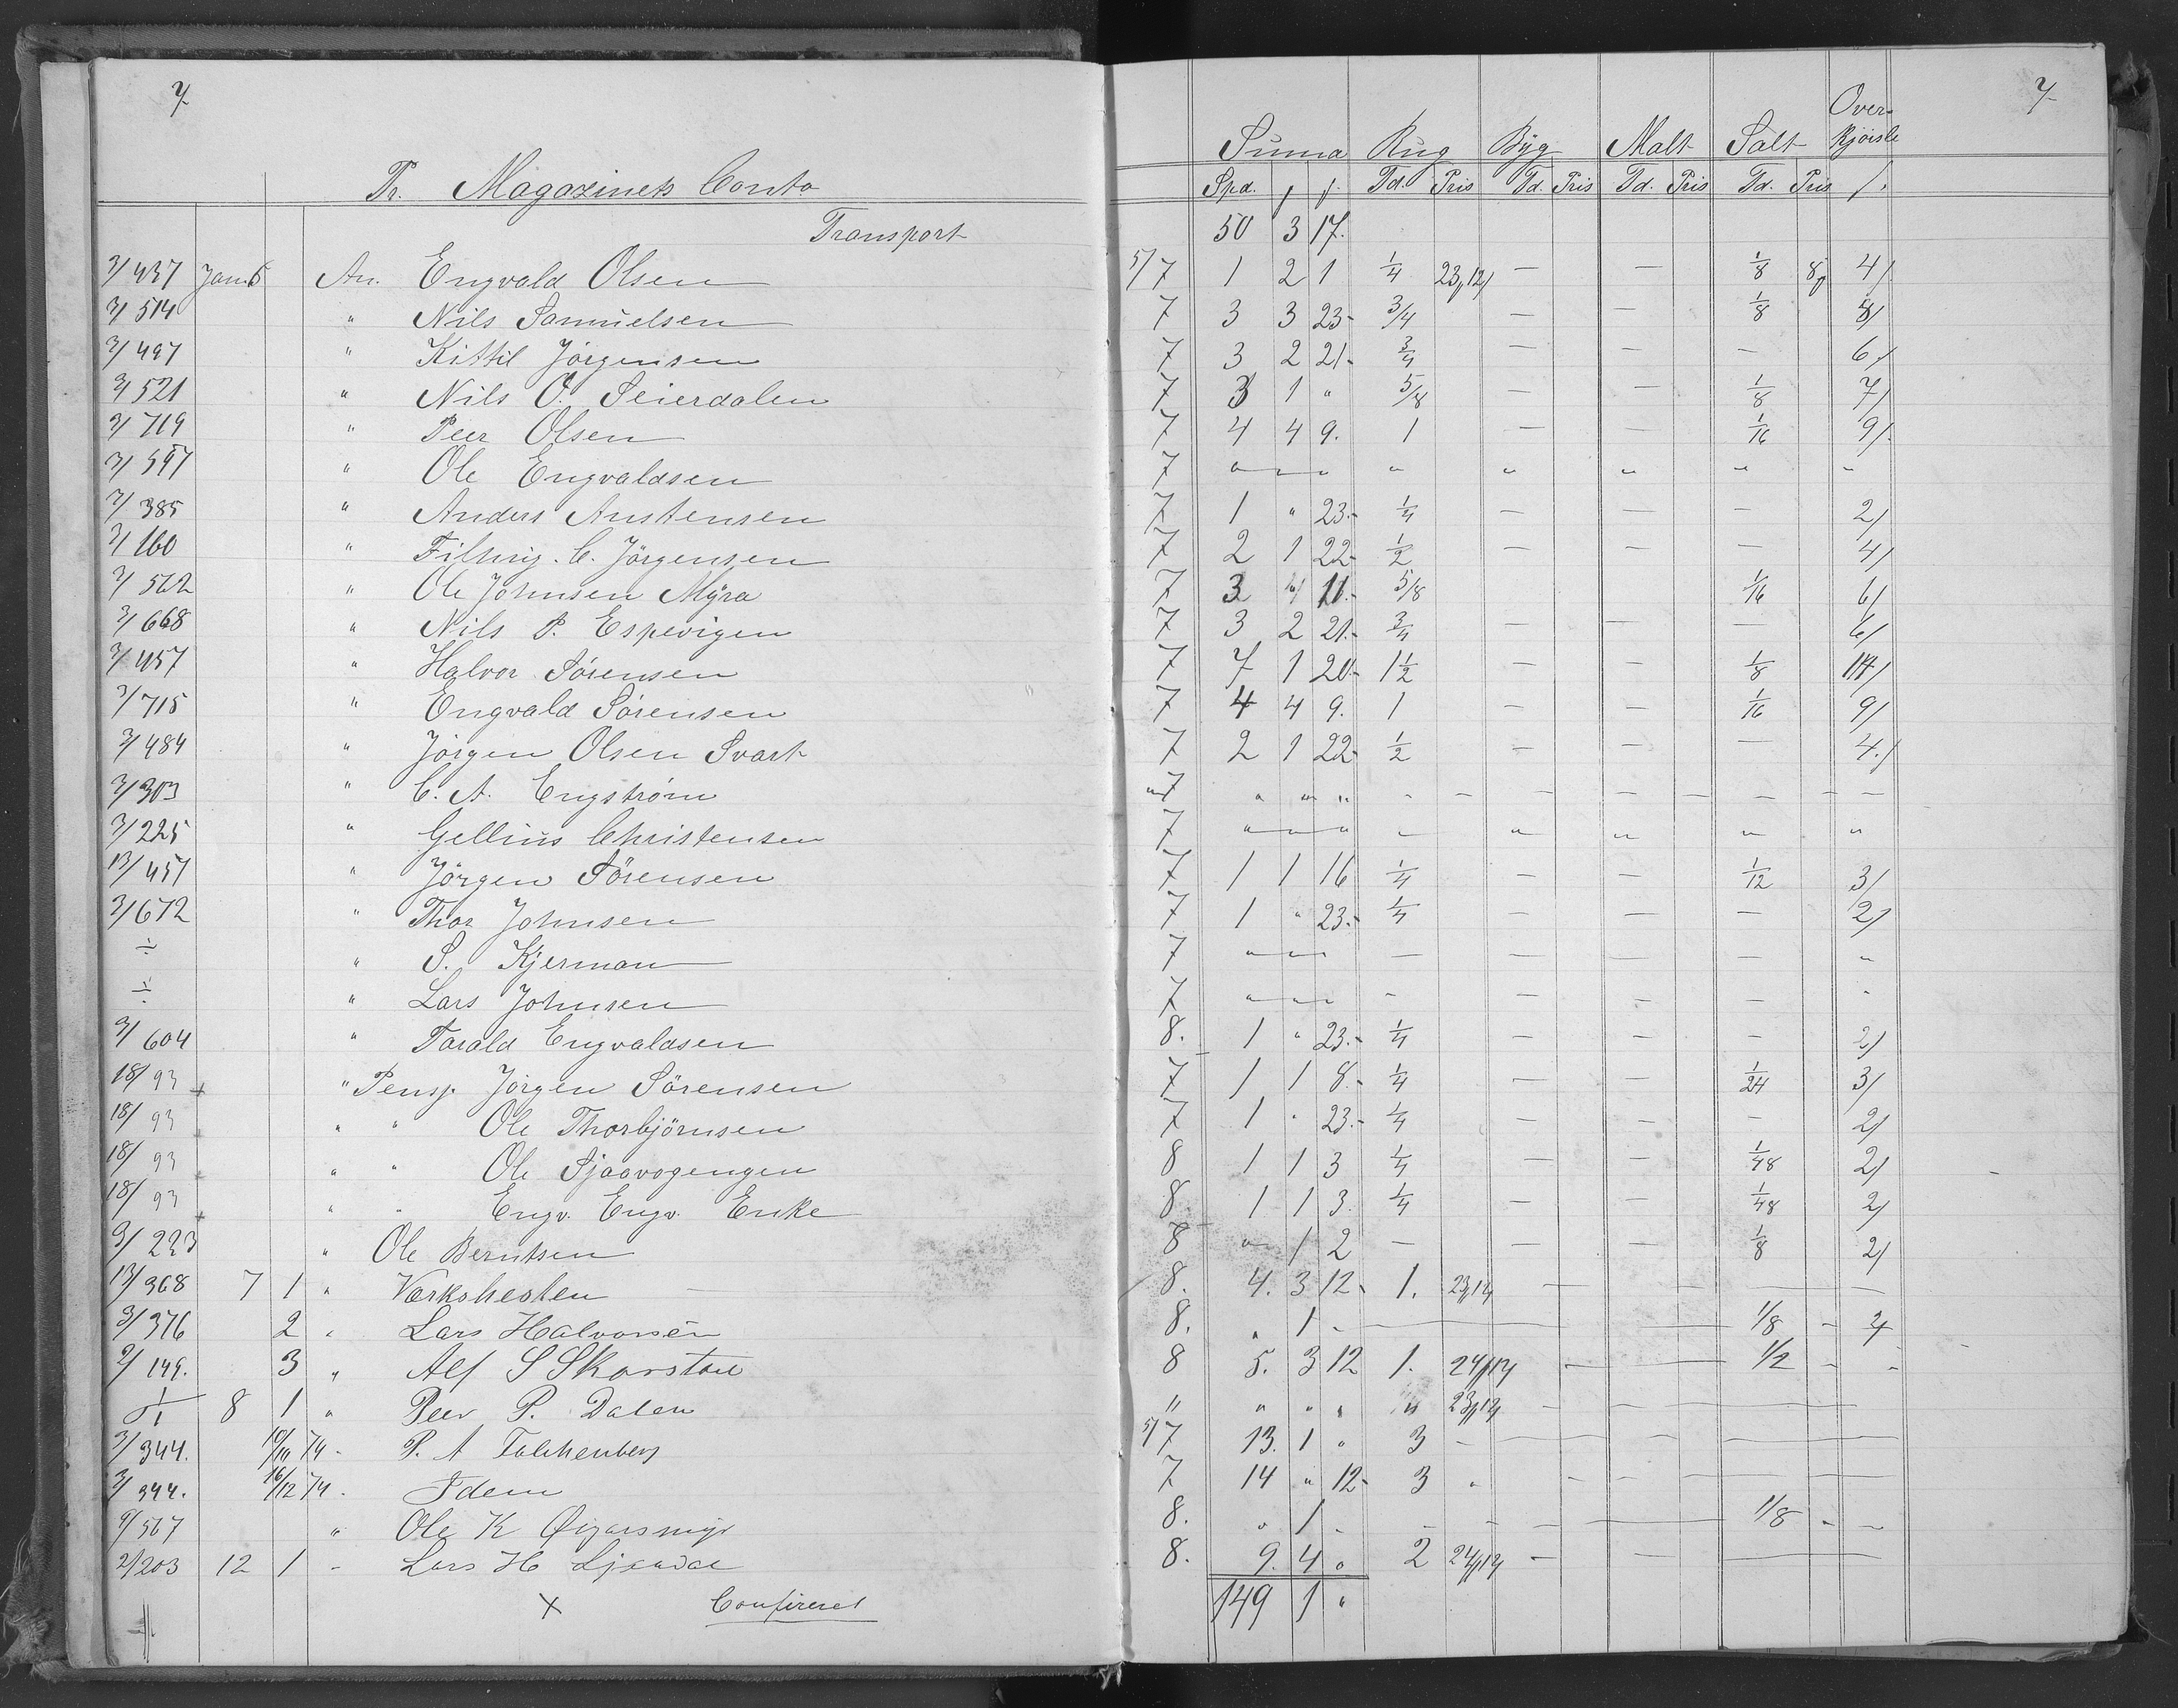 7. 7
Over-
Summa Rug Byg Malt Salt kjørsle
Pr. Magazinets Conto Spd. Td. Pris Td. Pris Td. Pris Td. Pris
Transport 50 3 17.
3/437 Jan. 6 An. Engvald Olsen 5/7 1 2 1 1/4 23,12 — — 1/8 4/
3/514 " Nils Samuelsen 7 3 3 23 3/4 — — 1/8 8/
3/497 " Kittil Jörgensen 7 3 2 21 3/4 — — — 6/
3/521 " Nils O. Seierdalen 7 3 1 " 5/8 — — 1/8 7/
3/719 " Peer Olsen 7 4 4 9. 1 — — 1/16 9/
3/597 " Ole Engvaldsen 7 " " " " " " " "
3/385 " Anders Anstensen 7 1 " 23 1/4 — — — 2/
3/160 " C. Jörgensen 7 2 1 22 1/2 — — — 4/
3/562 " Ole Johnsen Myra 7 3 11 5/8 1/16 6/
3/668 " Nils P. Espevigen 7 3 2 21 3/4 — — — 6/
3/457 " Halvor Sörensen 7 7 1 20 1 1/2 — — 1/8 14/
3/715 " Engvald Sörensen 7 4 4 9. 1 — — 1/16 9/
3/484 " Jörgen Olsen Svart 7 2 1 22 1/2 — — — 4/
3/303 " C. A. Engström 7 " " " - - — — — — — —
3/225 " Gellius Christensen 7 " " " — " " " "
13/457 " Jörgen Sörensen 7 1 1 16 1/4 — — 1/12 3/
3/672 " Thor Johnsen 7 1 " 23 1/4 — — — 2/
÷ " S. Kjerman 7 " " " — — — — "
÷ " Lars Johnsen 7 " " " - — — — "
3/604 " Tarald Engvaldsen 8. 1 " 23 1/4 — — — 2/
18/93 " Pensj. Jörgen Sörensen 7 1 1 8 1/4 — — 1/24 3/
18/93 " " Ole Thorbjörnsen 7 1 " 23 1/4 — — — 2/
18/93 " " Ole Sjaavogengen 8 1 1 3 1/4 — — 1/48 2/
18/93 " " Engv. Engv. Enke 8 1 1 3. 1/4 — — 1/48 2/
3/223 " Ole Berntsen 8 " 1 2 — — — 1/8 2/
13/368 7 1 " Værkshesten 8. 4. 3 12 1. 23,12 — — —
3/376 2 " Lars Halvorsen 8. " 1 - — — 1/8 - 2/
2/149. 3 " Alf S Skarstøl 8 5. 3 12 1. 24,12 — — 1/2 - -
÷ 8 1 " Peer P. Dalen " " " " " 23,12 — — —
3/344. 10/10 74 - P. A Falchenberg 5/7 13. 1 " 3 - — — —
3/344. 16/12 74 - Idem 7 14 " 12 3 " — — —
9/567 " Ole K Øigarsmyr 8. " 1 - - - — — 1/8 - -
2/203 12 1 - Lars H Ljaadal 8. 9. 4 " 2 24,12 — — —
× Confereret 149 1 "